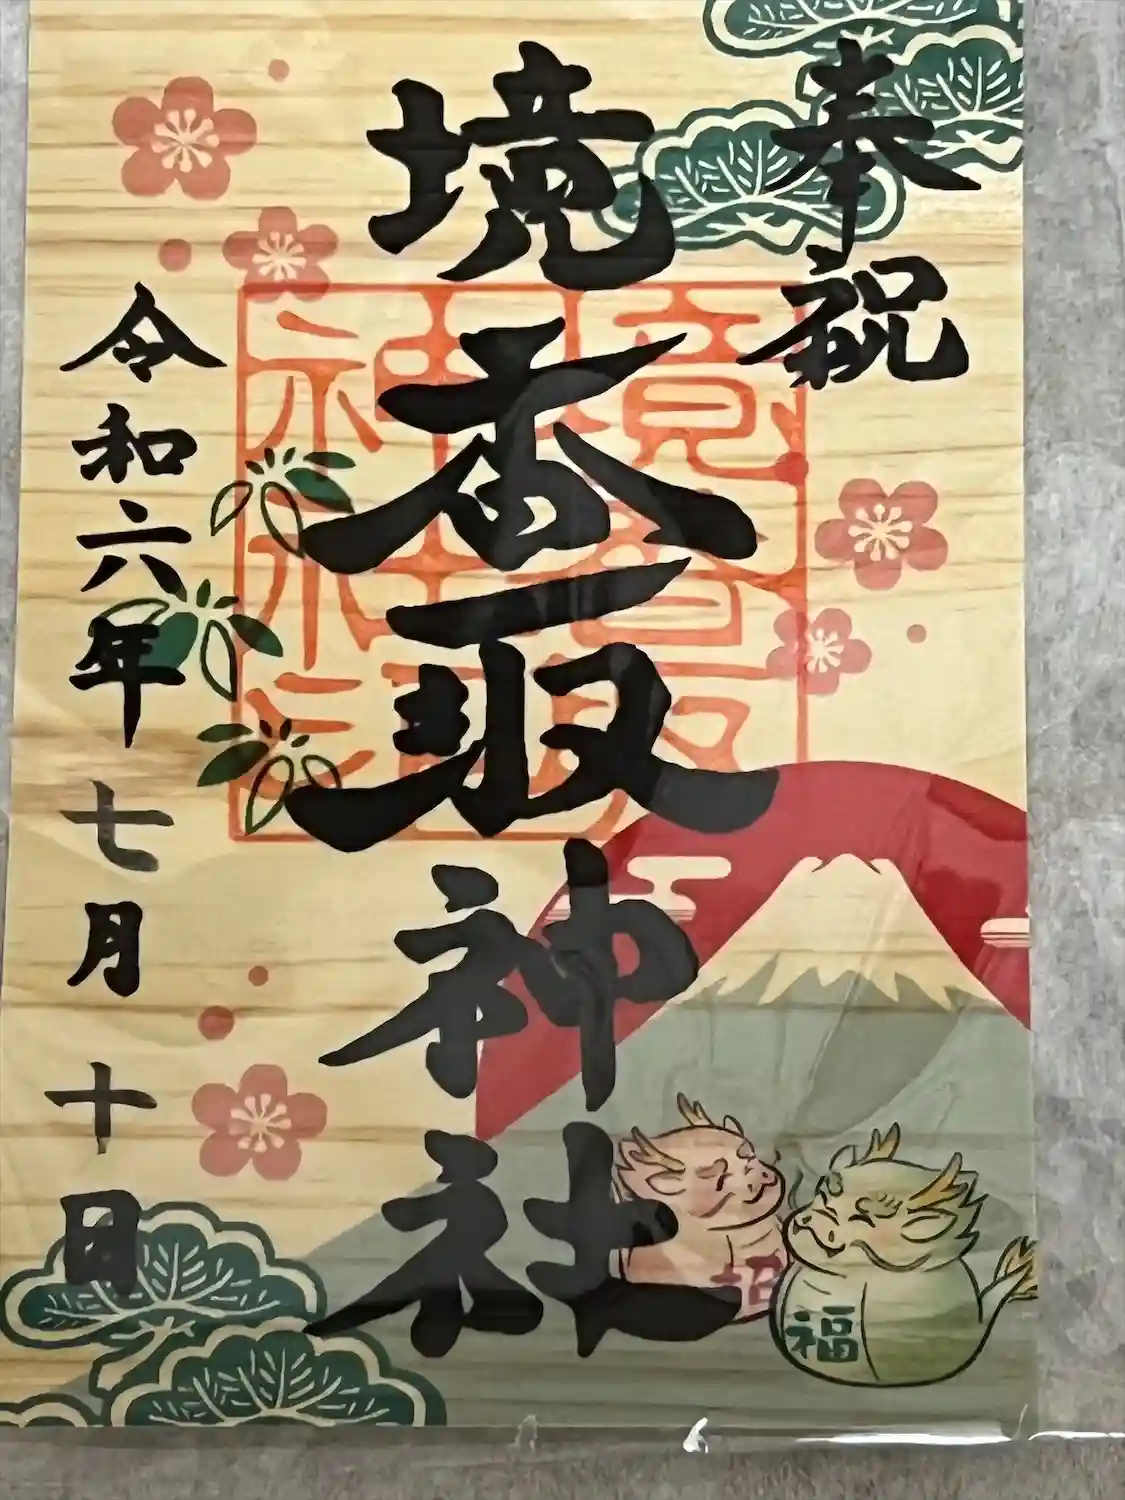 奉祝
境香取神社
令和六年七月十日
境香取神社神社
招
福